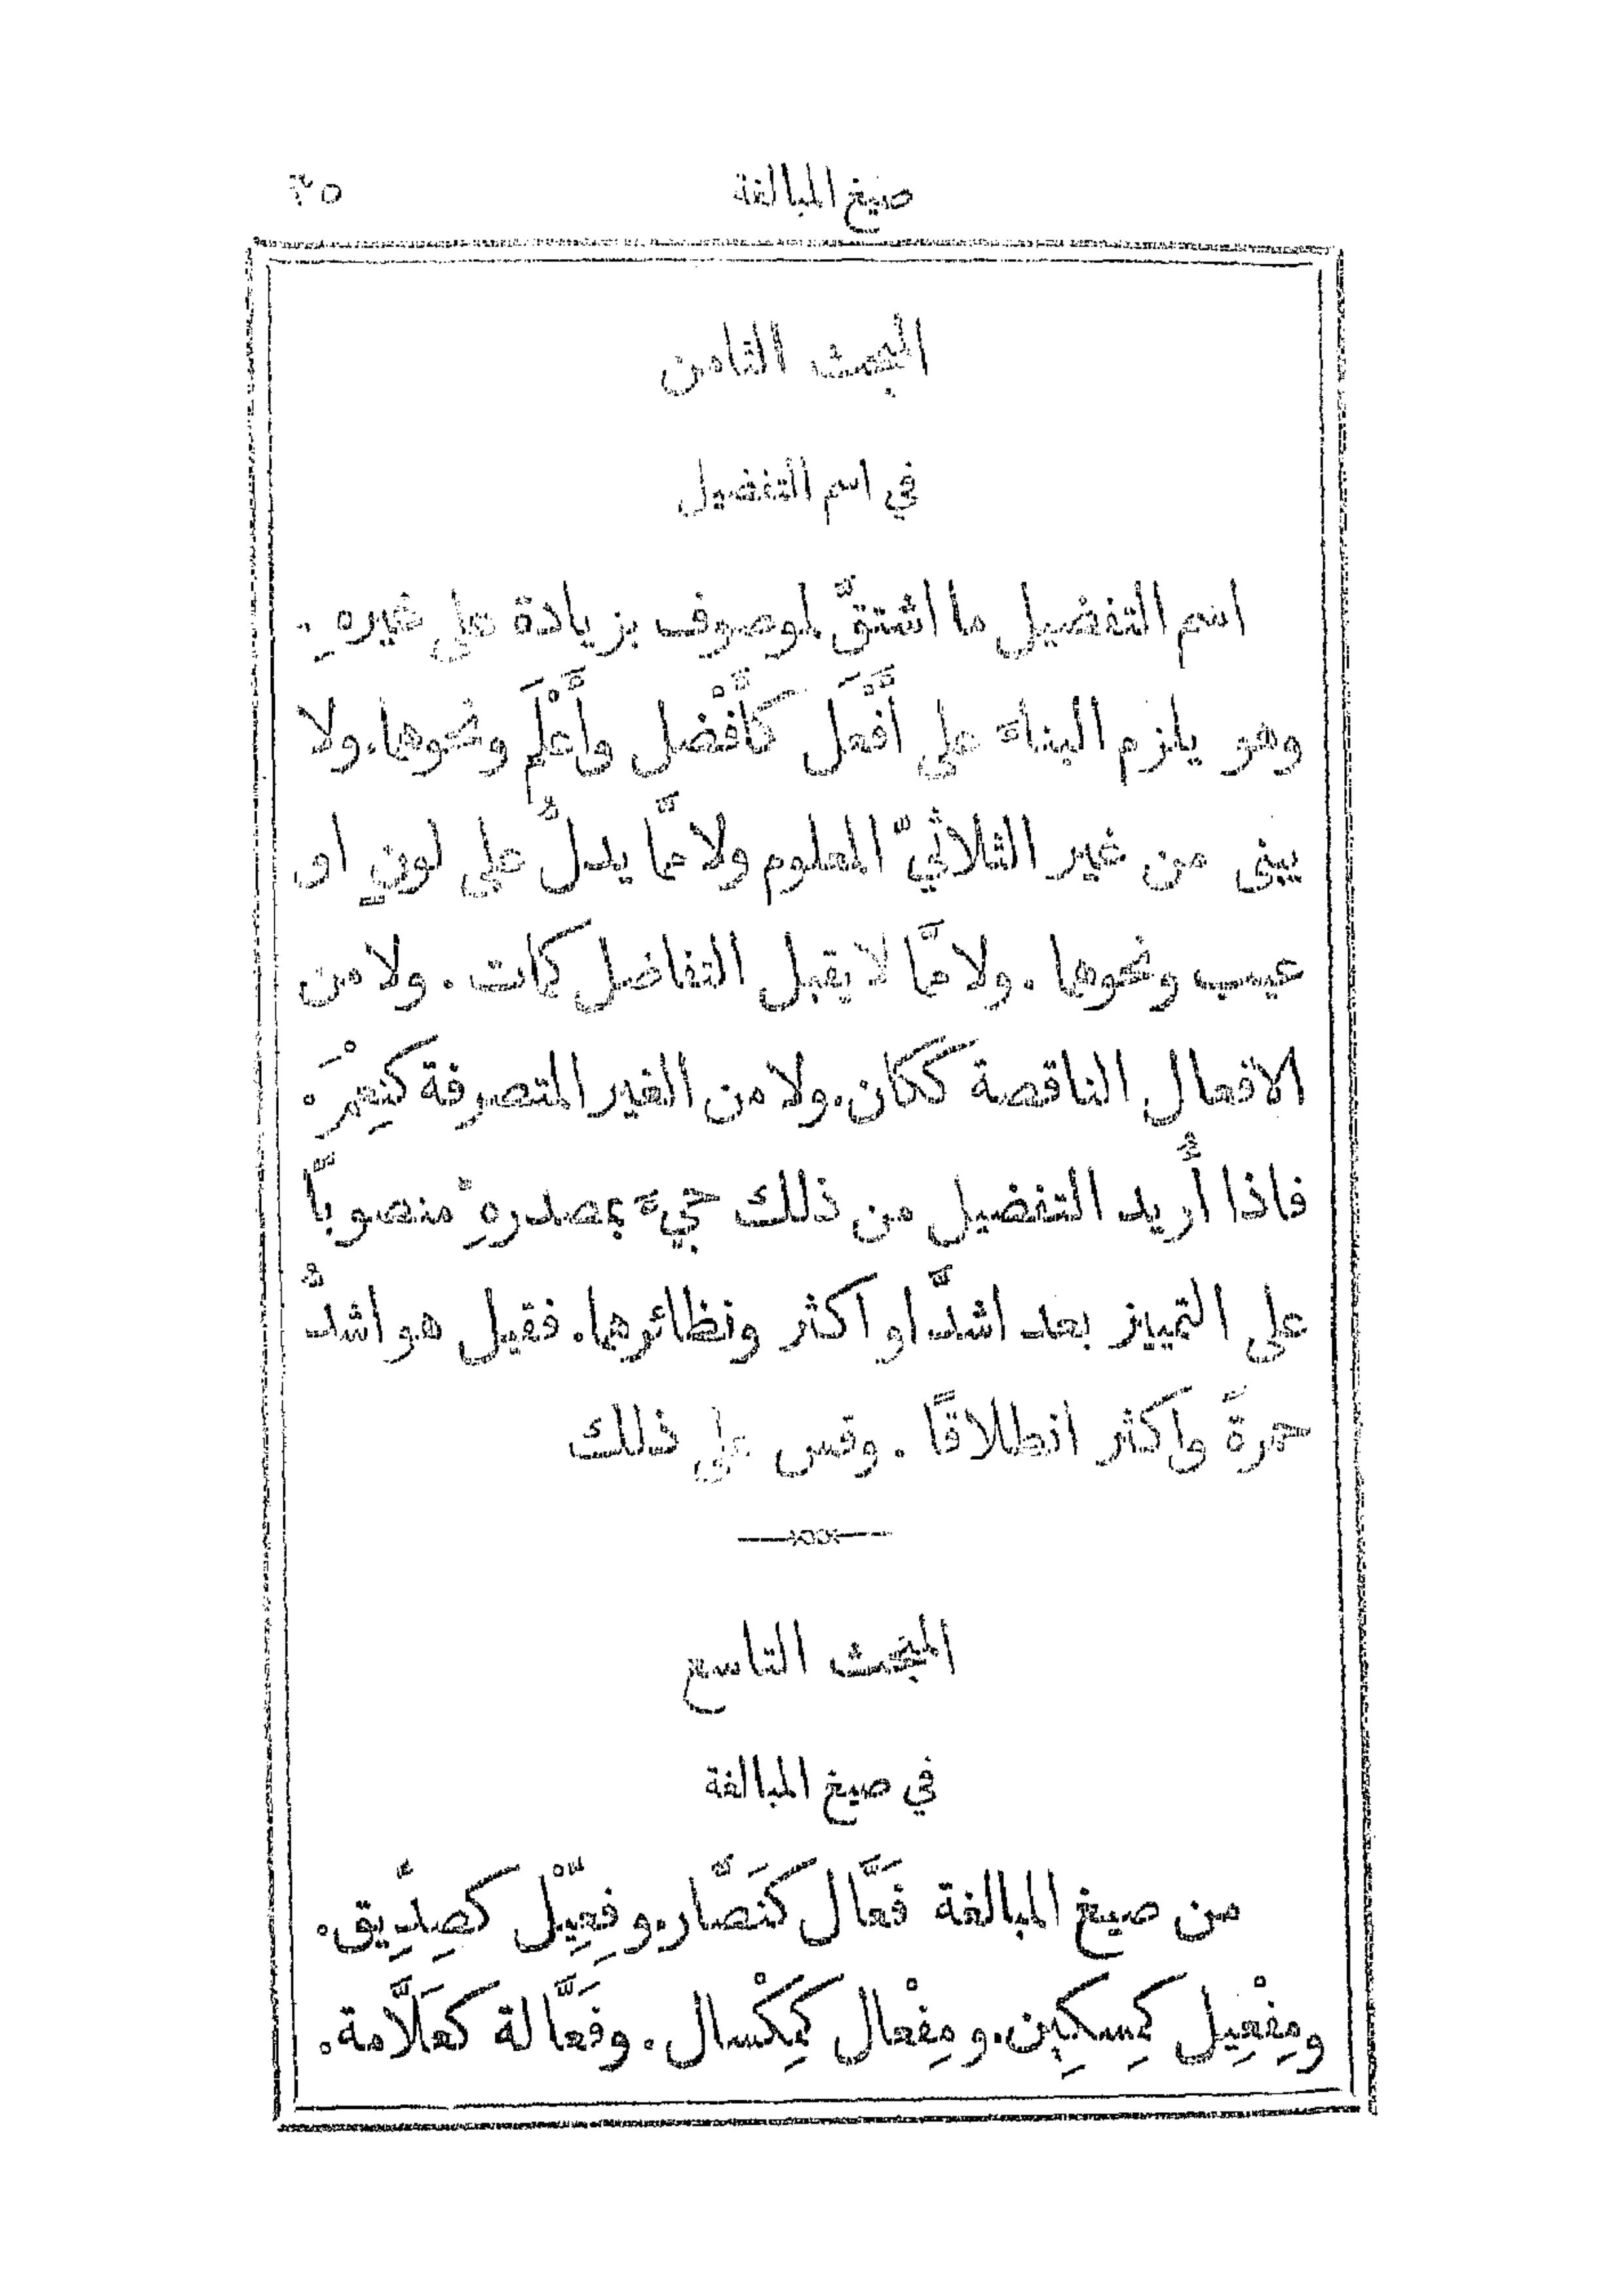 صيغ المبالغة ٢٥
المبحث الثامن
في اسم التفضيل
اسم التفضيل ما اشتقَّ لموصوف بزيادة على غيرهِ.
وهو يلزم البناءَ على أَفْعَل كأَفْضَل وأَعْلَم ونحوها. ولا
يبنى من غير الثلاثيّ المعلوم ولا ممَّا يدلُّ على لونٍ او
عيب ونحوها. ولا ممَّا لا يقبل التفاضل كمات. ولا من
الافعال الناقصة ككان. ولا من الغير المتصرفة كنِعْمَ.
فاذا أُريد التفضيل من ذلك جيءَ بمصدرهِ منصوبًا
على التمييز بعد اشدَّ او اكثر ونظائرها. فقيل هو اشدُّ
حمرةً واكثر انطلاقًا. وقس على ذلك
المبحث التاسع
في صيغ المبالغة
من صيغ المبالغة فَعَّال كنَصَّار. وفِعِّيْل كصِدِّيق.
ومِفْعِيل كمِسكِين. ومِفْعال كمِكْسال. وفَعَّالة كعَلَّامة.